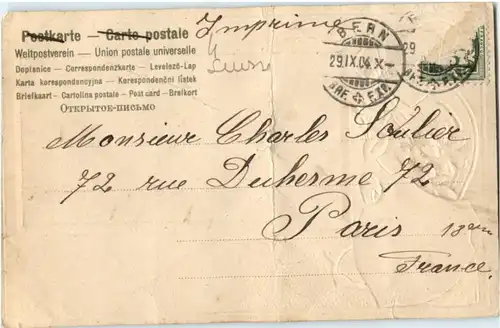 Postkarte — Carte postale
Imprimé
Weltpostverein – Union postale universelle
Dopisnice – Correspondenzkarte – Levelező-Lap
Karta korespondencyjna – Korespondenční lístek
Briefkaart – Cartolina postale – Post card – Brevkort
ОТКРЫТОЕ-ПИСЬМО
BERN
29.IX.04.X–
BRF. EXP.
Monsieur Charles Soulier
72 rue Duhesme 72
Paris 18em
France.